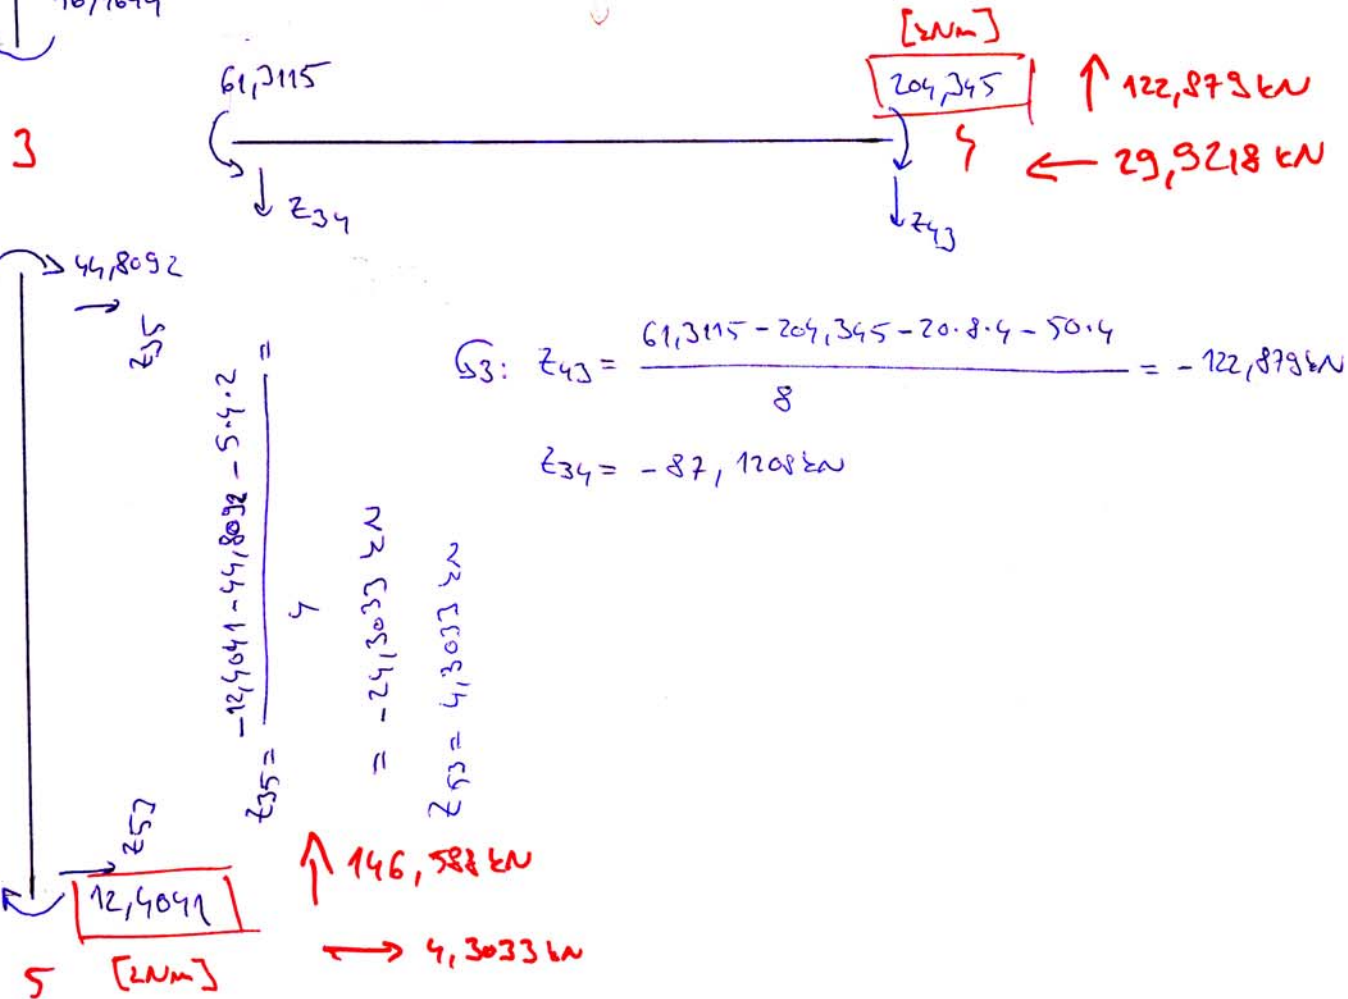 [kNm]
61,3115
204,345
↑ 122,879 kN
3
4
← 29,9218 kN
Z34
Z43
44,8092
Z35
↺3: Z43 = (61,3115 - 204,345 - 20·8·4 - 50·4) / 8 = - 122,879 kN
Z34 = - 87,1208 kN
Z35 = (-12,4041 - 44,8092 - 5·4·2) / 4 =
= - 24,3033 kN
Z53 = 4,3033 kN
Z53
↑ 146,588 kN
12,4041
→ 4,3033 kN
5 [kNm]